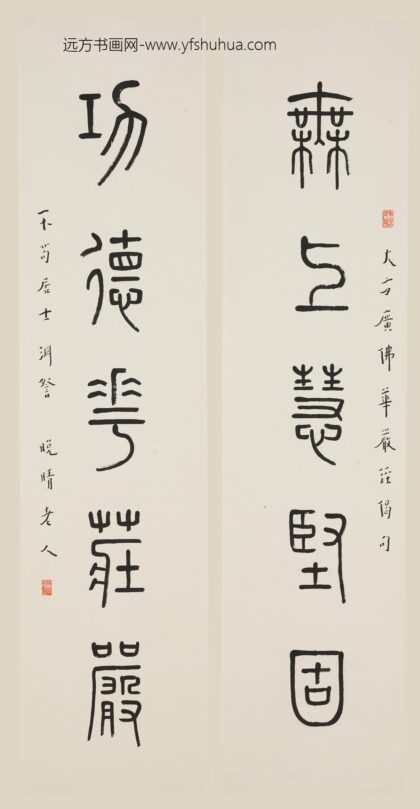 远方书画网-www.yfshuhua.com
大方廣佛華嚴經偈句
無上慧堅固
功德華莊嚴
不苟居士 詧 晚晴老人